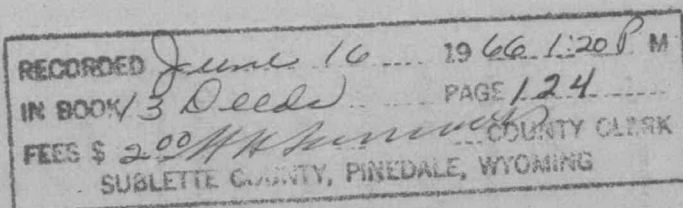 RECORDED June 16 1966 1:20 P M
IN BOOK 13 Deeds PAGE 124
FEES $ 2.00 COUNTY CLERK
SUBLETTE COUNTY, PINEDALE, WYOMING